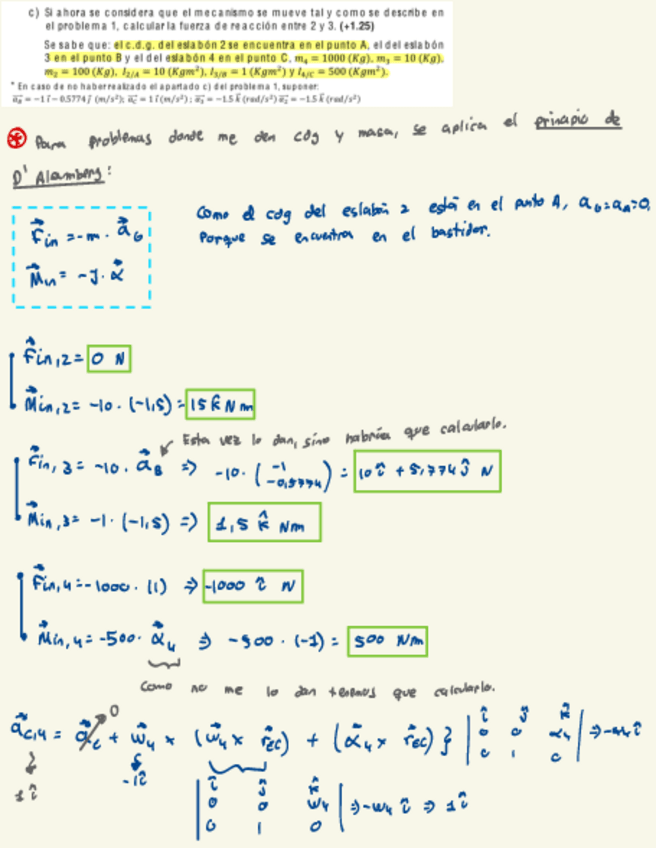 c) Si ahora se considera que el mecanismo se mueve tal y como se describe en
el problema 1, calcular la fuerza de reacción entre 2 y 3. (+1.25)
Se sabe que: el c.d.g. del eslabón 2 se encuentra en el punto A, el del eslabón
3 en el punto B y el del eslabón 4 en el punto C, m₄ = 1000 (Kg), m₃ = 10 (Kg),
m₂ = 100 (Kg), I₂/A = 10 (Kgm²), I₃/B = 1 (Kgm²) y I₄/C = 500 (Kgm²).
* En caso de no haber realizado el apartado c) del problema 1, suponer:
a_B = −1 i − 0.5774 j (m/s²); a_C = 1 i (m/s²); α₃ = −1.5 k (rad/s²) α₂ = −1.5 k (rad/s²)
* Para problemas donde me den cdg y masa, se aplica el principio de
D'Alamberg:
F in = -m · a G
M in = -J · α
Como el cdg del eslabón 2 está en el punto A, a G = a A = 0,
Porque se encuentra en el bastidor.
F in,2 = 0 N
M in,2 = -10 · (-1,5) = 15 k̂ Nm
Esta vez lo dan, sino habría que calcularlo.
F in,3 = -10 · a B => -10 · (-1 -0,5774) = 10 î + 5,774 ĵ N
M in,3 = -1 · (-1,5) => 1,5 k̂ Nm
F in,4 = -1000 · (1) => -1000 î N
M in,4 = -500 · α 4 => -500 · (-1) = 500 Nm
Como no me lo dan tenemos que calcularlo.
a C,4 = a c + w 4 x (w 4 x r EC) + (α 4 x r EC) } | î ĵ k̂ 0 0 α4 0 1 0 | => -α4 î
0
1 î
-1 î
| î ĵ k̂ 0 0 w4 0 1 0 | => -w4 î => 1 î